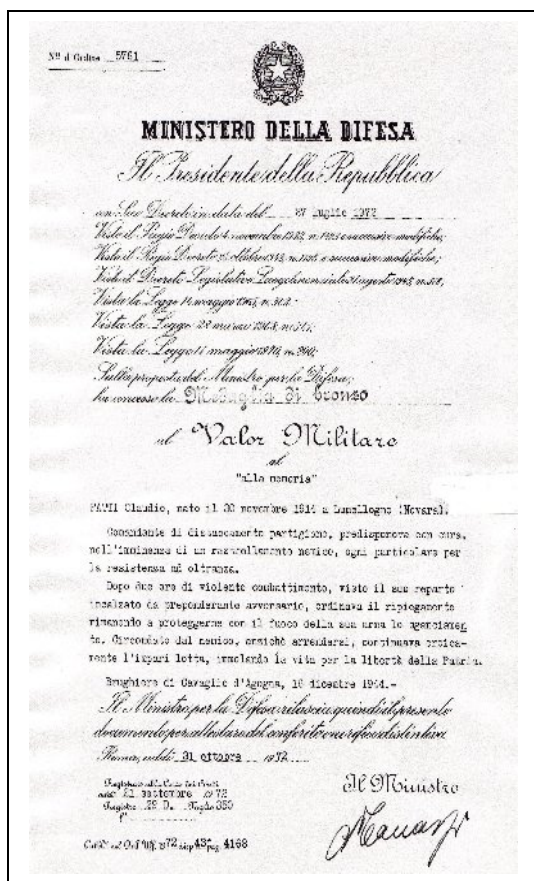 Nº d'Ordine 5761
MINISTERO DELLA DIFESA
Il Presidente della Repubblica
con Suo Decreto in data del 27 luglio 1972
Visto il Regio Decreto 4 novembre 1932, n. 1423 e successive modifiche;
Visto il Regio Decreto ottobre n. e successive modifiche;
Visto il Decreto Legislativo Luogotenenziale 21 agosto 1945, n. 518,
Vista la Legge 14 maggio n.
Vista la Legge marzo 1968, n.
Vista la Legge maggio 1970, n. 290;
Sulla proposta del Ministro per la Difesa;
ha concesso la Medaglia di bronzo
al Valor Militare
al
"alla memoria"
Claudio, nato il 30 novembre 1914 a Lumellogno (Novara).
Comandante di distaccamento partigiano, predisponeva con cura,
nell'imminenza di un rastrellamento nemico, ogni particolare per
la resistenza ad oltranza.
Dopo due ore di violento combattimento, visto il suo reparto
incalzato da preponderante avversario, ordinava il ripiegamento
rimanendo a proteggerne con il fuoco della sua arma lo sganciamen
to. Circondato dal nemico, anzichè arrendersi, continuava eroica-
mente l'impari lotta, immolando la vita per la libertà della Patria.
Brughiere di Cavaglio d'Agogna, 16 dicembre 1944.-
Il Ministro per la Difesa rilascia quindi il presente
documento per attestare del conferito onorifico distintivo.
Roma, addì 31 ottobre 1972
Registrato alla Corte dei Conti
addì 21 settembre 1972
Registro 29 D. Foglio 350
Il Ministro
1972 disp. 43ª pag. 4168